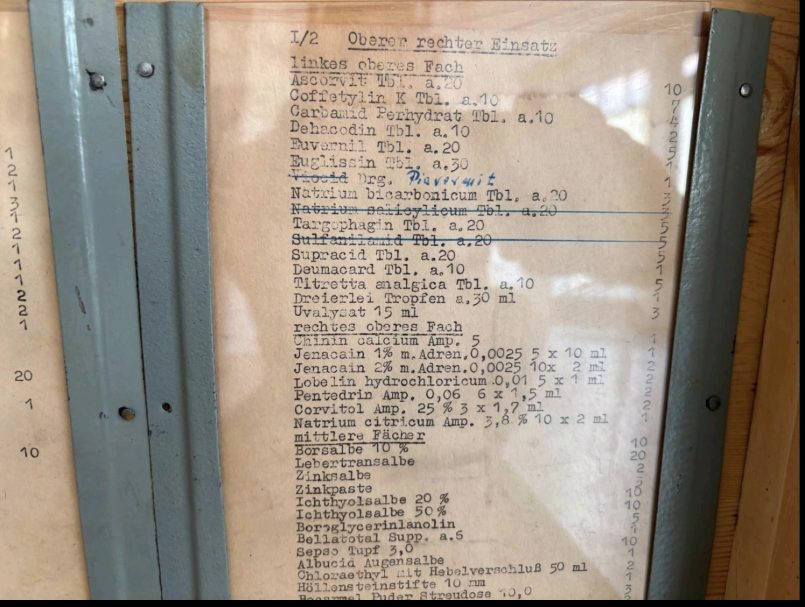 I/2 Oberer rechter Einsatz
linkes oberes Fach
Ascorvit Tbl. a.20 10
Coffetylin K Tbl. a.10 7
Carbamid Perhydrat Tbl. a.10 4
Dehacodin Tbl. a.10 2
Euvernil Tbl. a.20 5
Euglissin Tbl. a.30 1
Viocid Drg. 1
Natrium bicarbonicum Tbl. a.20 3
Natrium salicylicum Tbl. a.20
Targophagin Tbl. a.20 5
Sulfanilamid Tbl. a.20 5
Supracid Tbl. a.20 5
Deumacard Tbl. a.10 1
Titretta analgica Tbl. a.10 5
Dreierlei Tropfen a.30 ml 1
Uvalysat 15 ml 3
rechtes oberes Fach
Chinin calcium Amp. 5 1
Jenacain 1% m.Adren.0,0025 5 x 10 ml 1
Jenacain 2% m.Adren.0,0025 10x 2 ml 2
Lobelin hydrochloricum 0,01 5 x 1 ml 2
Pentedrin Amp. 0,06 6 x 1,5 ml 2
Corvitol Amp. 25 % 3 x 1,7 ml 2
Natrium citricum Amp. 3,8 % 10 x 2 ml 1
mittlere Fächer
Borsalbe 10 % 10
Lebertransalbe 20
Zinksalbe 2
Zinkpaste
Ichthyolsalbe 20 % 10
Ichthyolsalbe 50% 10
Boroglycerinlanolin 5
Bellatotal Supp. a.6
Sepso Tupf 3,0 10
Albucid Augensalbe 1
Chloraethyl mit Hebelverschluß 50 ml 2
Höllensteinstifte 10 mm 1
Puder Streudose 10,0
1
2
1
3
1
2
1
1
2
2
1
20
1
10